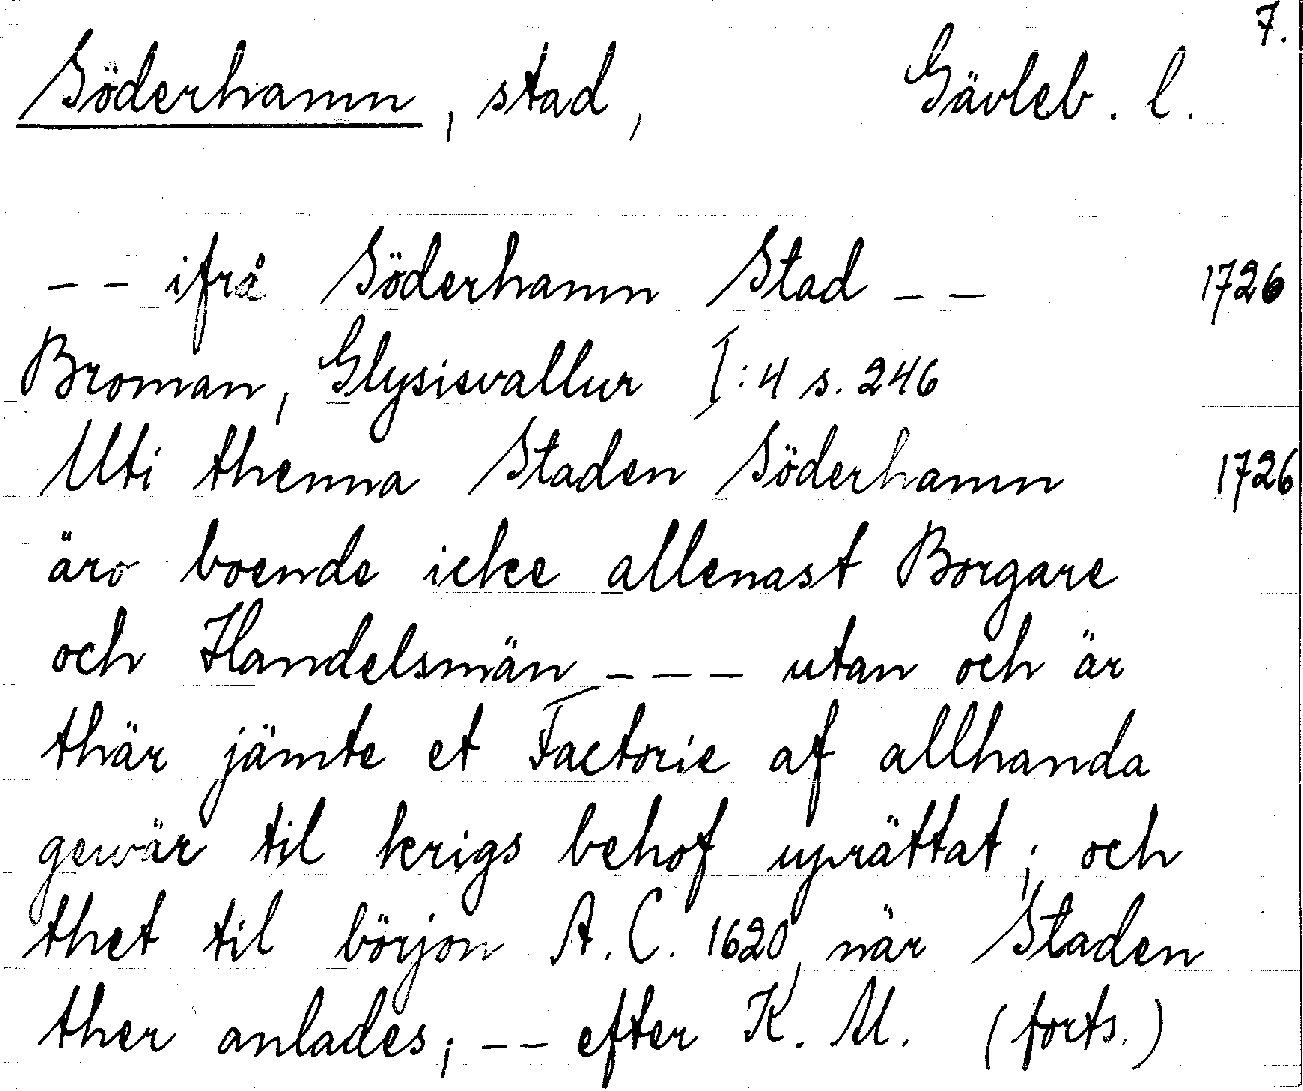 7.
Söderhamn, stad, Gävleb. l.
-- ifrå Söderhamn Stad -- 1726
Broman, Glysisvallur I:4 s. 246
Uti thenna Staden Söderhamn 1726
äro boende icke allenast Borgare
och Handelsmän --- utan och är
thär jämte et Factorie af allhanda
gewär til krigs behof uprättat; och
thet til börjon A. C. 1620, när Staden
ther anlades; -- efter K. M. (forts.)